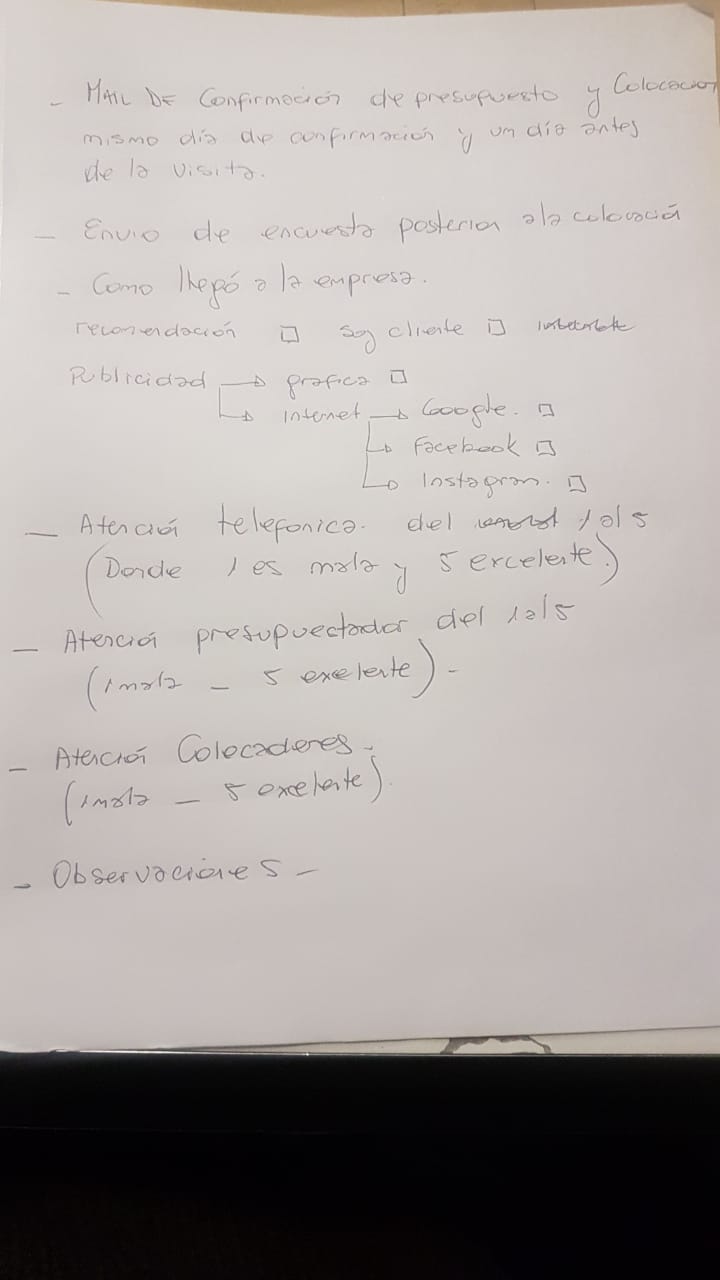 - MAIL DE Confirmación de presupuesto y Colocacion
mismo día de confirmación y un día antes
de la visita.
- Envio de encuesta posterior a la colocación
- Como llegó a la empresa.
recomendación □ Soy cliente □
Publicidad → grafica □
↳ internet → Google. □
↳ Facebook □
↳ Instagram. □
- Atención telefonica. del 1 al 5
(Donde 1 es mala y 5 excelente.)
- Atención presupuestador del 1 al 5
(1 mala - 5 exelente) -
- Atención Colocadores -
(1 mala - 5 exelente).
- Observaciones -